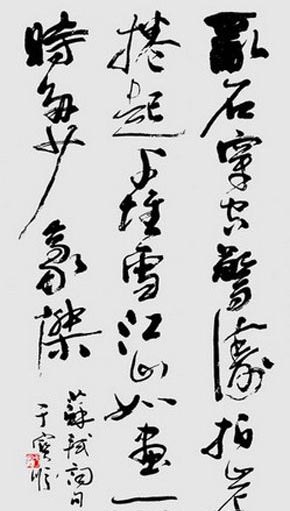 亂石穿空驚濤拍岸
捲起千堆雪江山如畫一
時多少豪傑
蘇軾詞句
于寶順